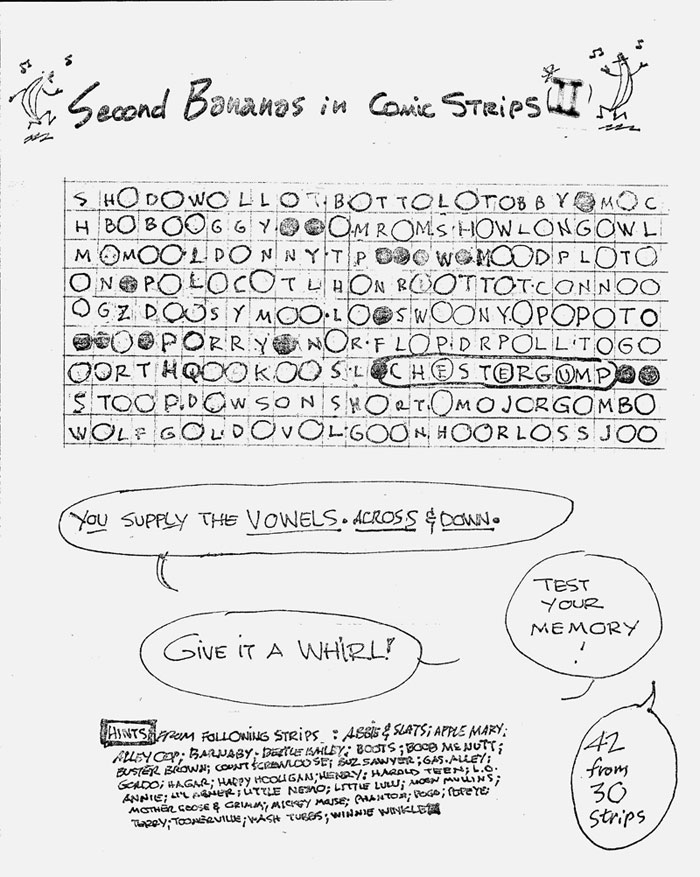 Second Bananas in Comic Strips (II)
S H O D O W O L L O T B O T T O L O T O B B Y ● M O C
H B O B O O G G Y ● ● O M R O M S H O W L O N G O W L
M O M O O L D O N N Y T P ● ● O W ● M O O D P L O T O
O N ● P O L O C O T L H O N R O O T T O T C O N N O O
O G Z D O O S Y M O O L O ● S W O O N Y O P O P O T O
● ● O ● P O R R Y ● N O R F L O P D R P O L L T O G O
O O R T H Q O O K O O S L ● C H E S T E R G U M P ● ●
S T O O P D O W S O N S H O R T O M O J O R G O M B O
W O L F G O L D O V O L G O O N H O O R L O S S J O O
YOU SUPPLY THE VOWELS. ACROSS & DOWN.
TEST
YOUR
MEMORY
!
GIVE IT A WHIRL!
HINTS FROM FOLLOWING STRIPS : ABBIE & SLATS; APPLE MARY;
ALLEY OOP; BARNABY; BEETLE BAILEY; BOOTS; BOOB McNUTT;
BUSTER BROWN; COUNT SCREWLOOSE; BUZ SAWYER; GAS. ALLEY;
GORDO; HAGAR; HAPPY HOOLIGAN; HENRY; HAROLD TEEN; L.O.
ANNIE; LI'L ABNER; LITTLE NEMO; LITTLE LULU; MOON MULLINS;
MOTHER GOOSE & GRIMM; MICKEY MOUSE; PHANTOM; POGO; POPEYE
TERRY; TOONERVILLE; WASH TUBBS; WINNIE WINKLE
42
from
30
strips